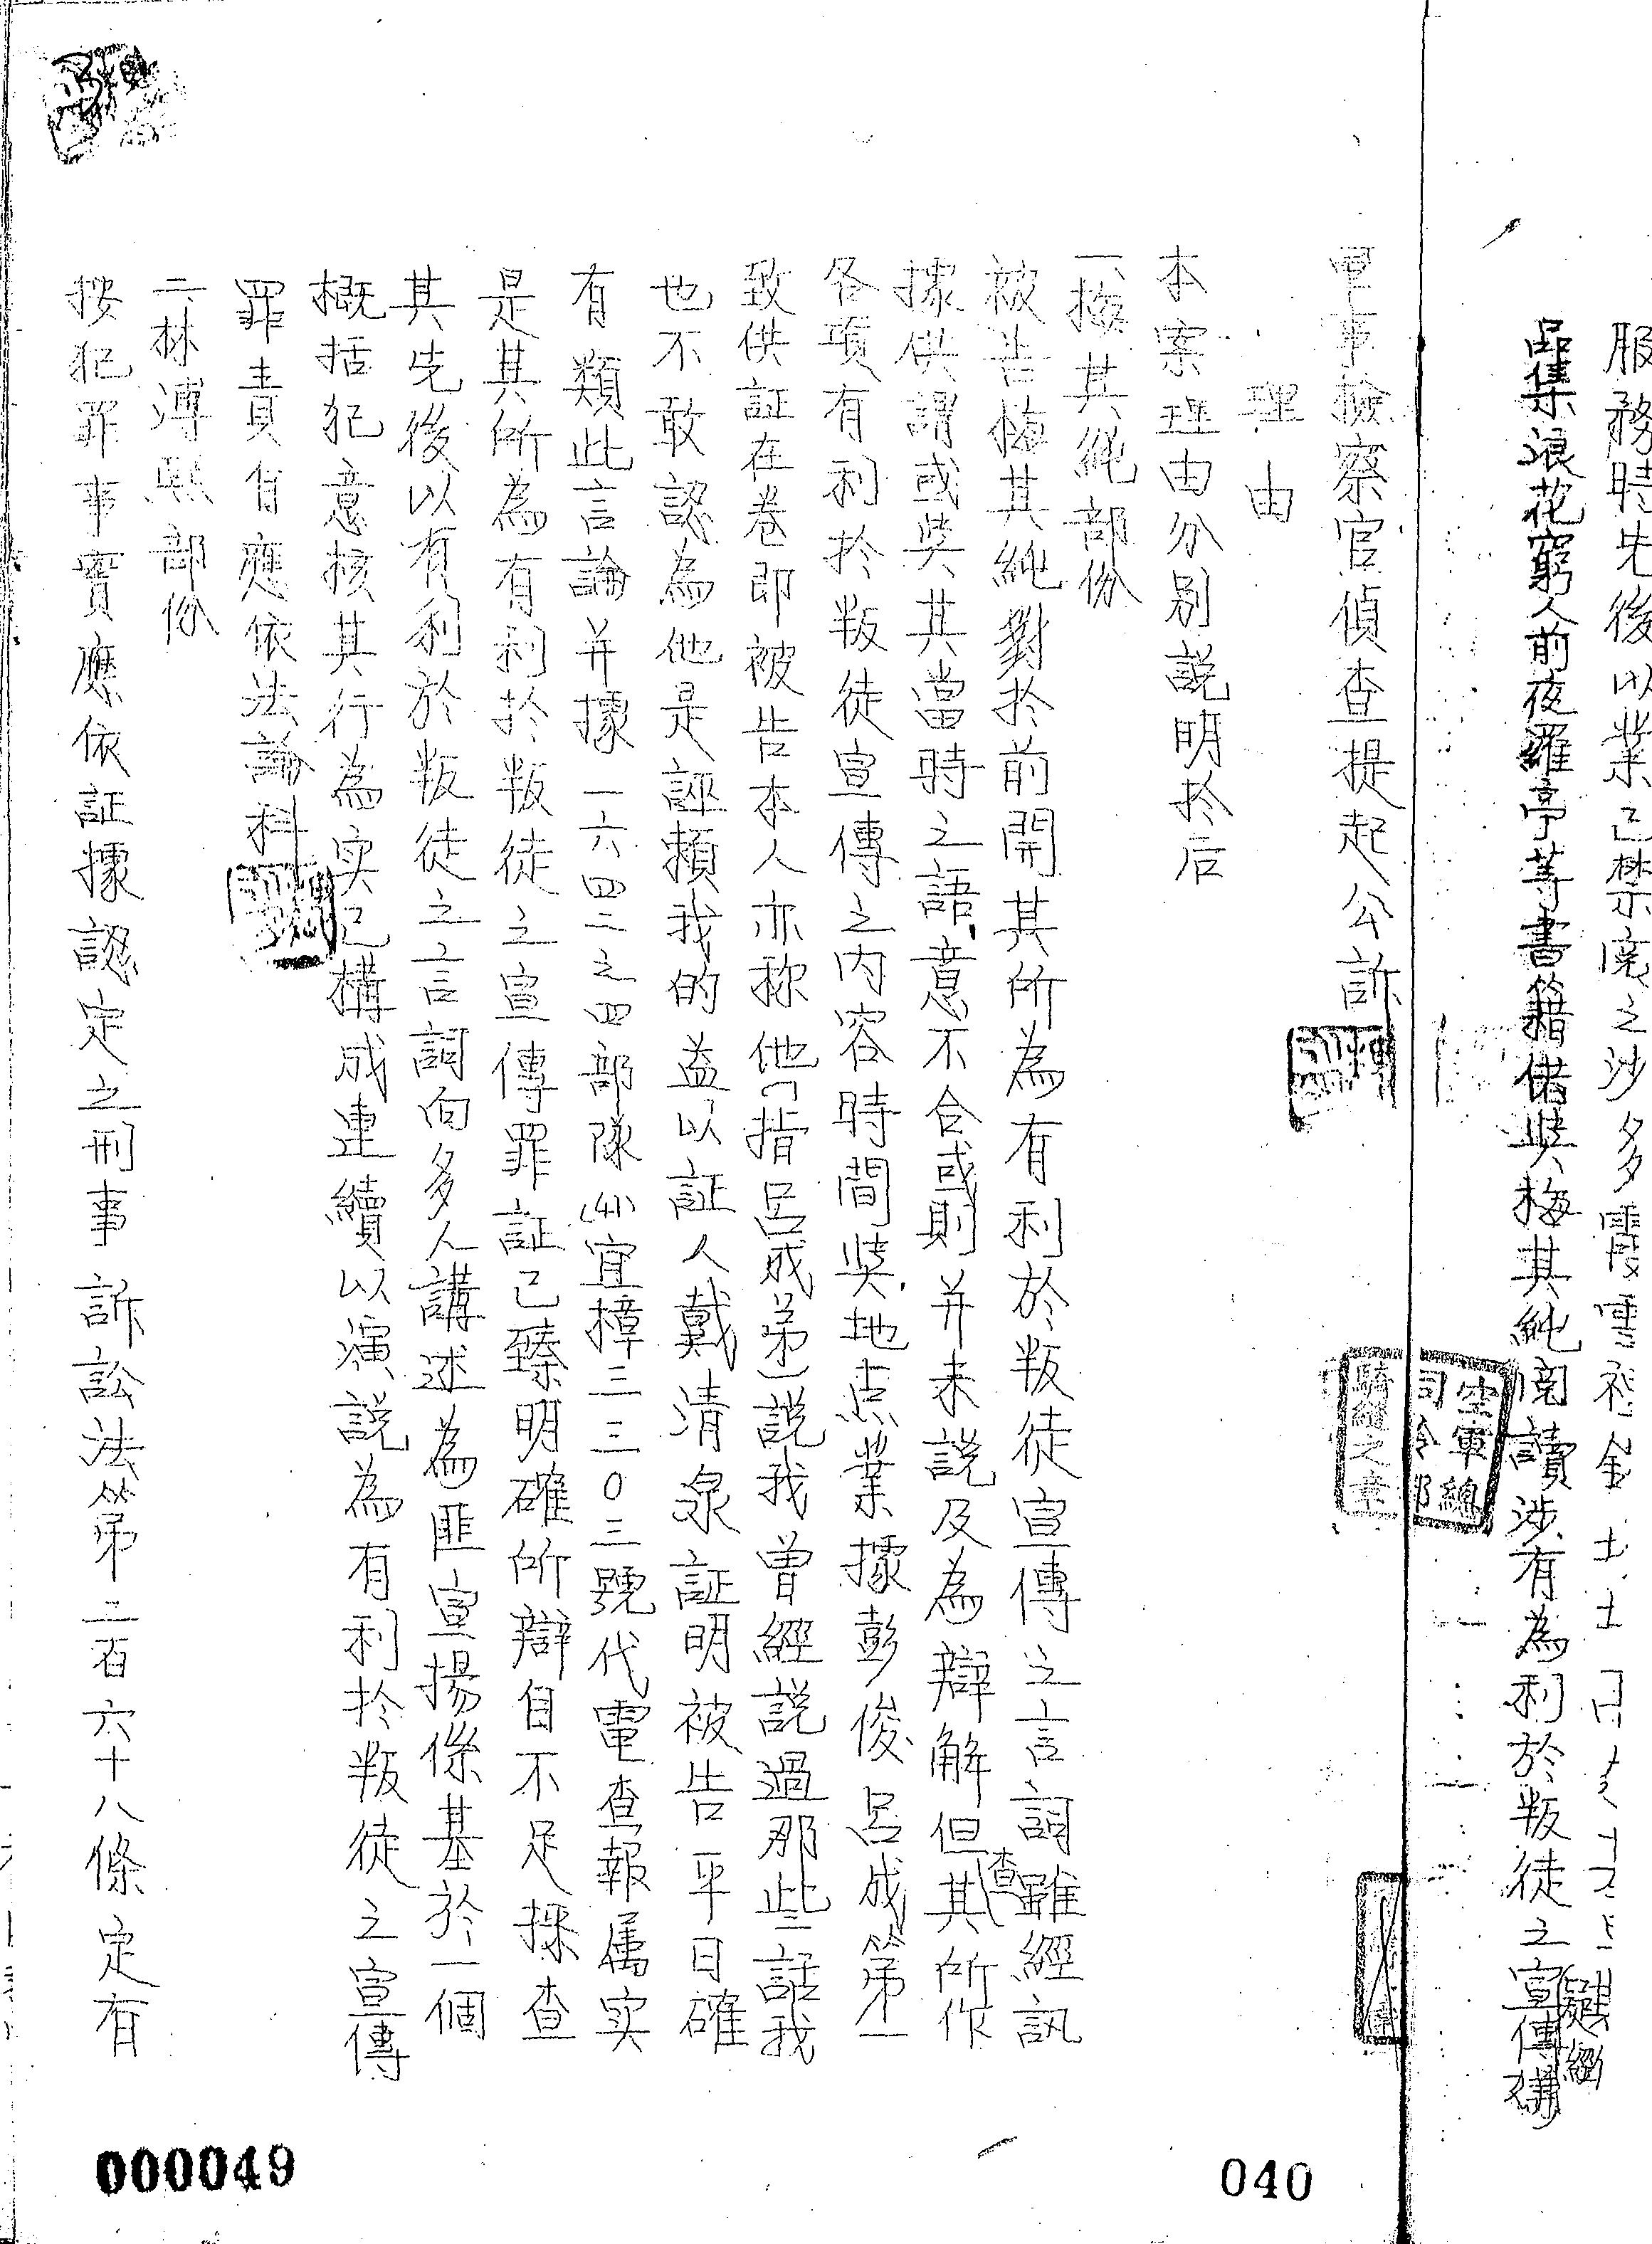 服務時先後以業已禁
品集浪花窮人前夜羅亭等書籍借與梅其純閱讀涉有為利於叛徒之宣傳嫌
疑經
軍事檢察官偵查提起公訴
理由
本案理由分別説明於后
一、梅其純部份
被告梅其純對於前開其所為有利於叛徒宣傳之言詞雖經訊
據供謂或與其當時之語意不合或則并未説及為辯解但查其所作
各項有利於叛徒宣傳之内容時間與地点業據彭俊呂成第一
致供証在卷即被告本人亦称他(指呂成弟)説我曾經説過那些話我
也不敢認為他是誣賴我的益以証人戴清泉証明被告平日確
有類此言論并據一六四二之四部隊(41)宜樟三三0三號代電查報属实
是其所為有利於叛徒之宣傳罪証已臻明確所辯自不足採查
其先後以有利於叛徒之言詞向多人講述為匪宣揚係基於一個
概括犯意核其行為实已構成連續以演説為有利於叛徒之宣傳
罪責自應依法論科
二、林溥熙部份
按犯罪事實應依証據認定之刑事訴訟法第二百六十八條定有
空軍總
司令部
騎縫之章
000049
040